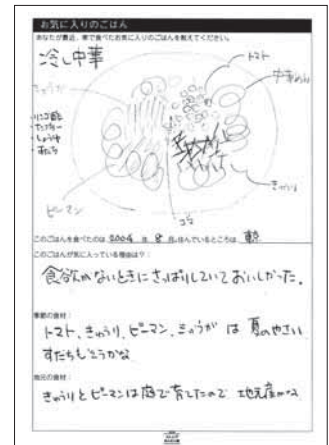 お気に入りのごはん
あなたが最近、家で食べたお気に入りのごはんを教えてください。
冷し中華
トマト
中華めん
みょうが
・リンゴ酢
・しょうゆ
・すだち
きゅうり
ピーマン
ごま
このごはんを食べたのは 2004 年 8 月、住んでいるところは、東京
このごはんが気に入っている理由は？：
食欲がないときにさっぱりしていておいしかった。
季節の食材：
トマト、きゅうり、ピーマン、みょうが は 夏のやさい
すだちもそうかな
地元の食材：
きゅうりとピーマンは庭で育てたので 地元産かな